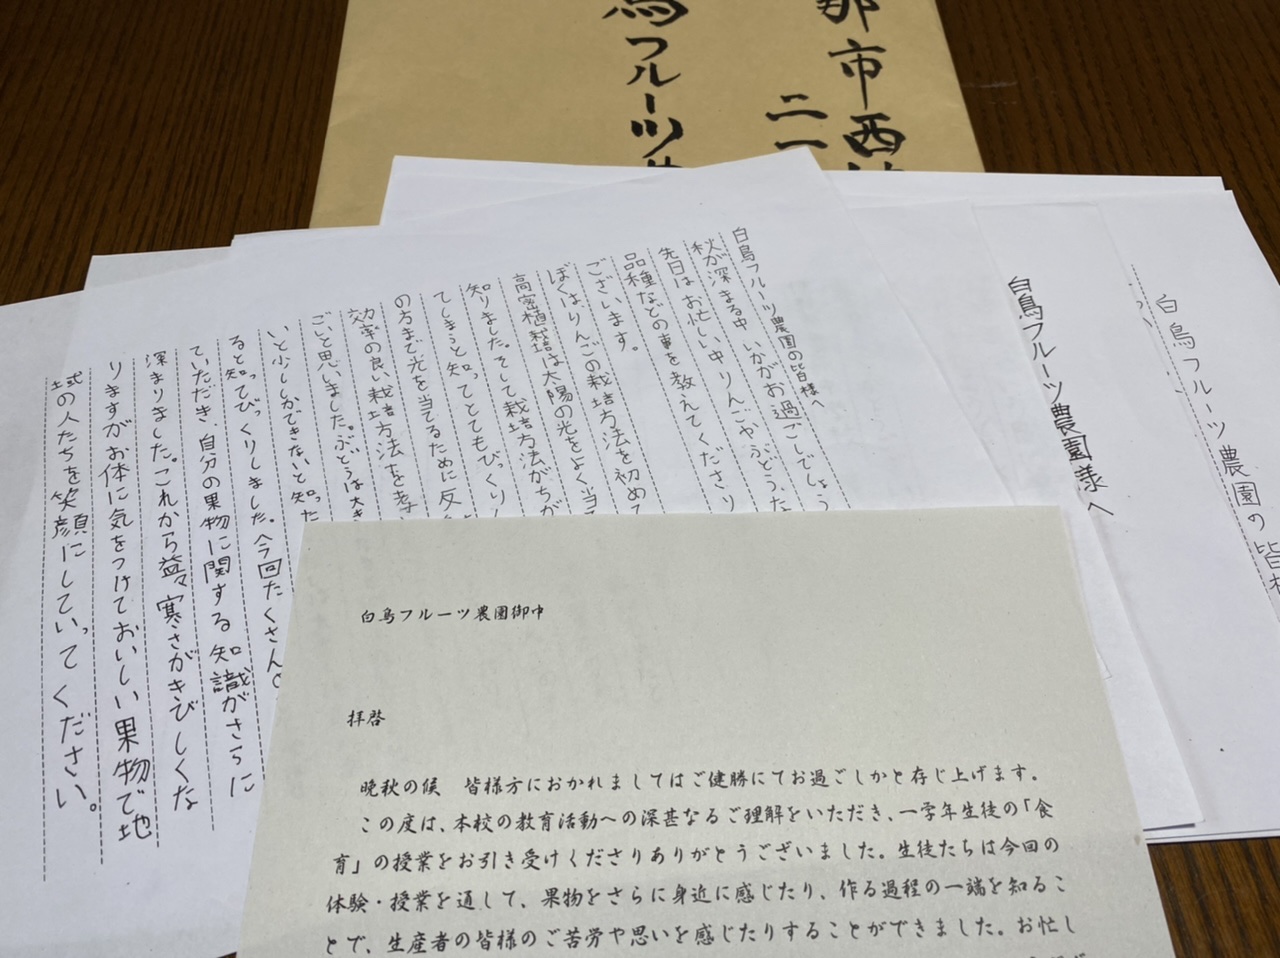 那市西
二一
鳥フルーツ
白鳥フルーツ農園の皆様へ
秋が深まる中いかがお過ごしでしょう
先日はお忙しい中りんごやぶどうた
品種などの事を教えてくださり
ございます。
ぼくは、りんごの栽培方法を初めて
高密植栽培は太陽の光をよく当
知りました。そして栽培方法がちが
てしまうと知ってとてもびっくり
の方まで光を当るために反
効率の良い栽培方法を考
ごいと思いました。ぶどうは大き
いと少ししかできないと知った
ると知ってびっくりしました。今回たくさん
ていただき、自分の果物に関する知識がさらに
深まりました。これから益々寒さがきびしくな
りますがお体に気をつけておいしい果物で地
域の人たちを笑顔にしていってください。
白鳥フルーツ農園様へ
白鳥フルーツ農園の皆
白鳥フルーツ農園御中
拝啓
晩秋の候 皆様方におかれましてはご健勝にてお過ごしかと存じ上げます。
この度は、本校の教育活動への深甚なるご理解をいただき、一学年生徒の「食
育」の授業をお引き受けくださりありがとうございました。生徒たちは今回の
体験・授業を通して、果物をさらに身近に感じたり、作る過程の一端を知るこ
とで、生産者の皆様のご苦労や思いを感じたりすることができました。お忙し